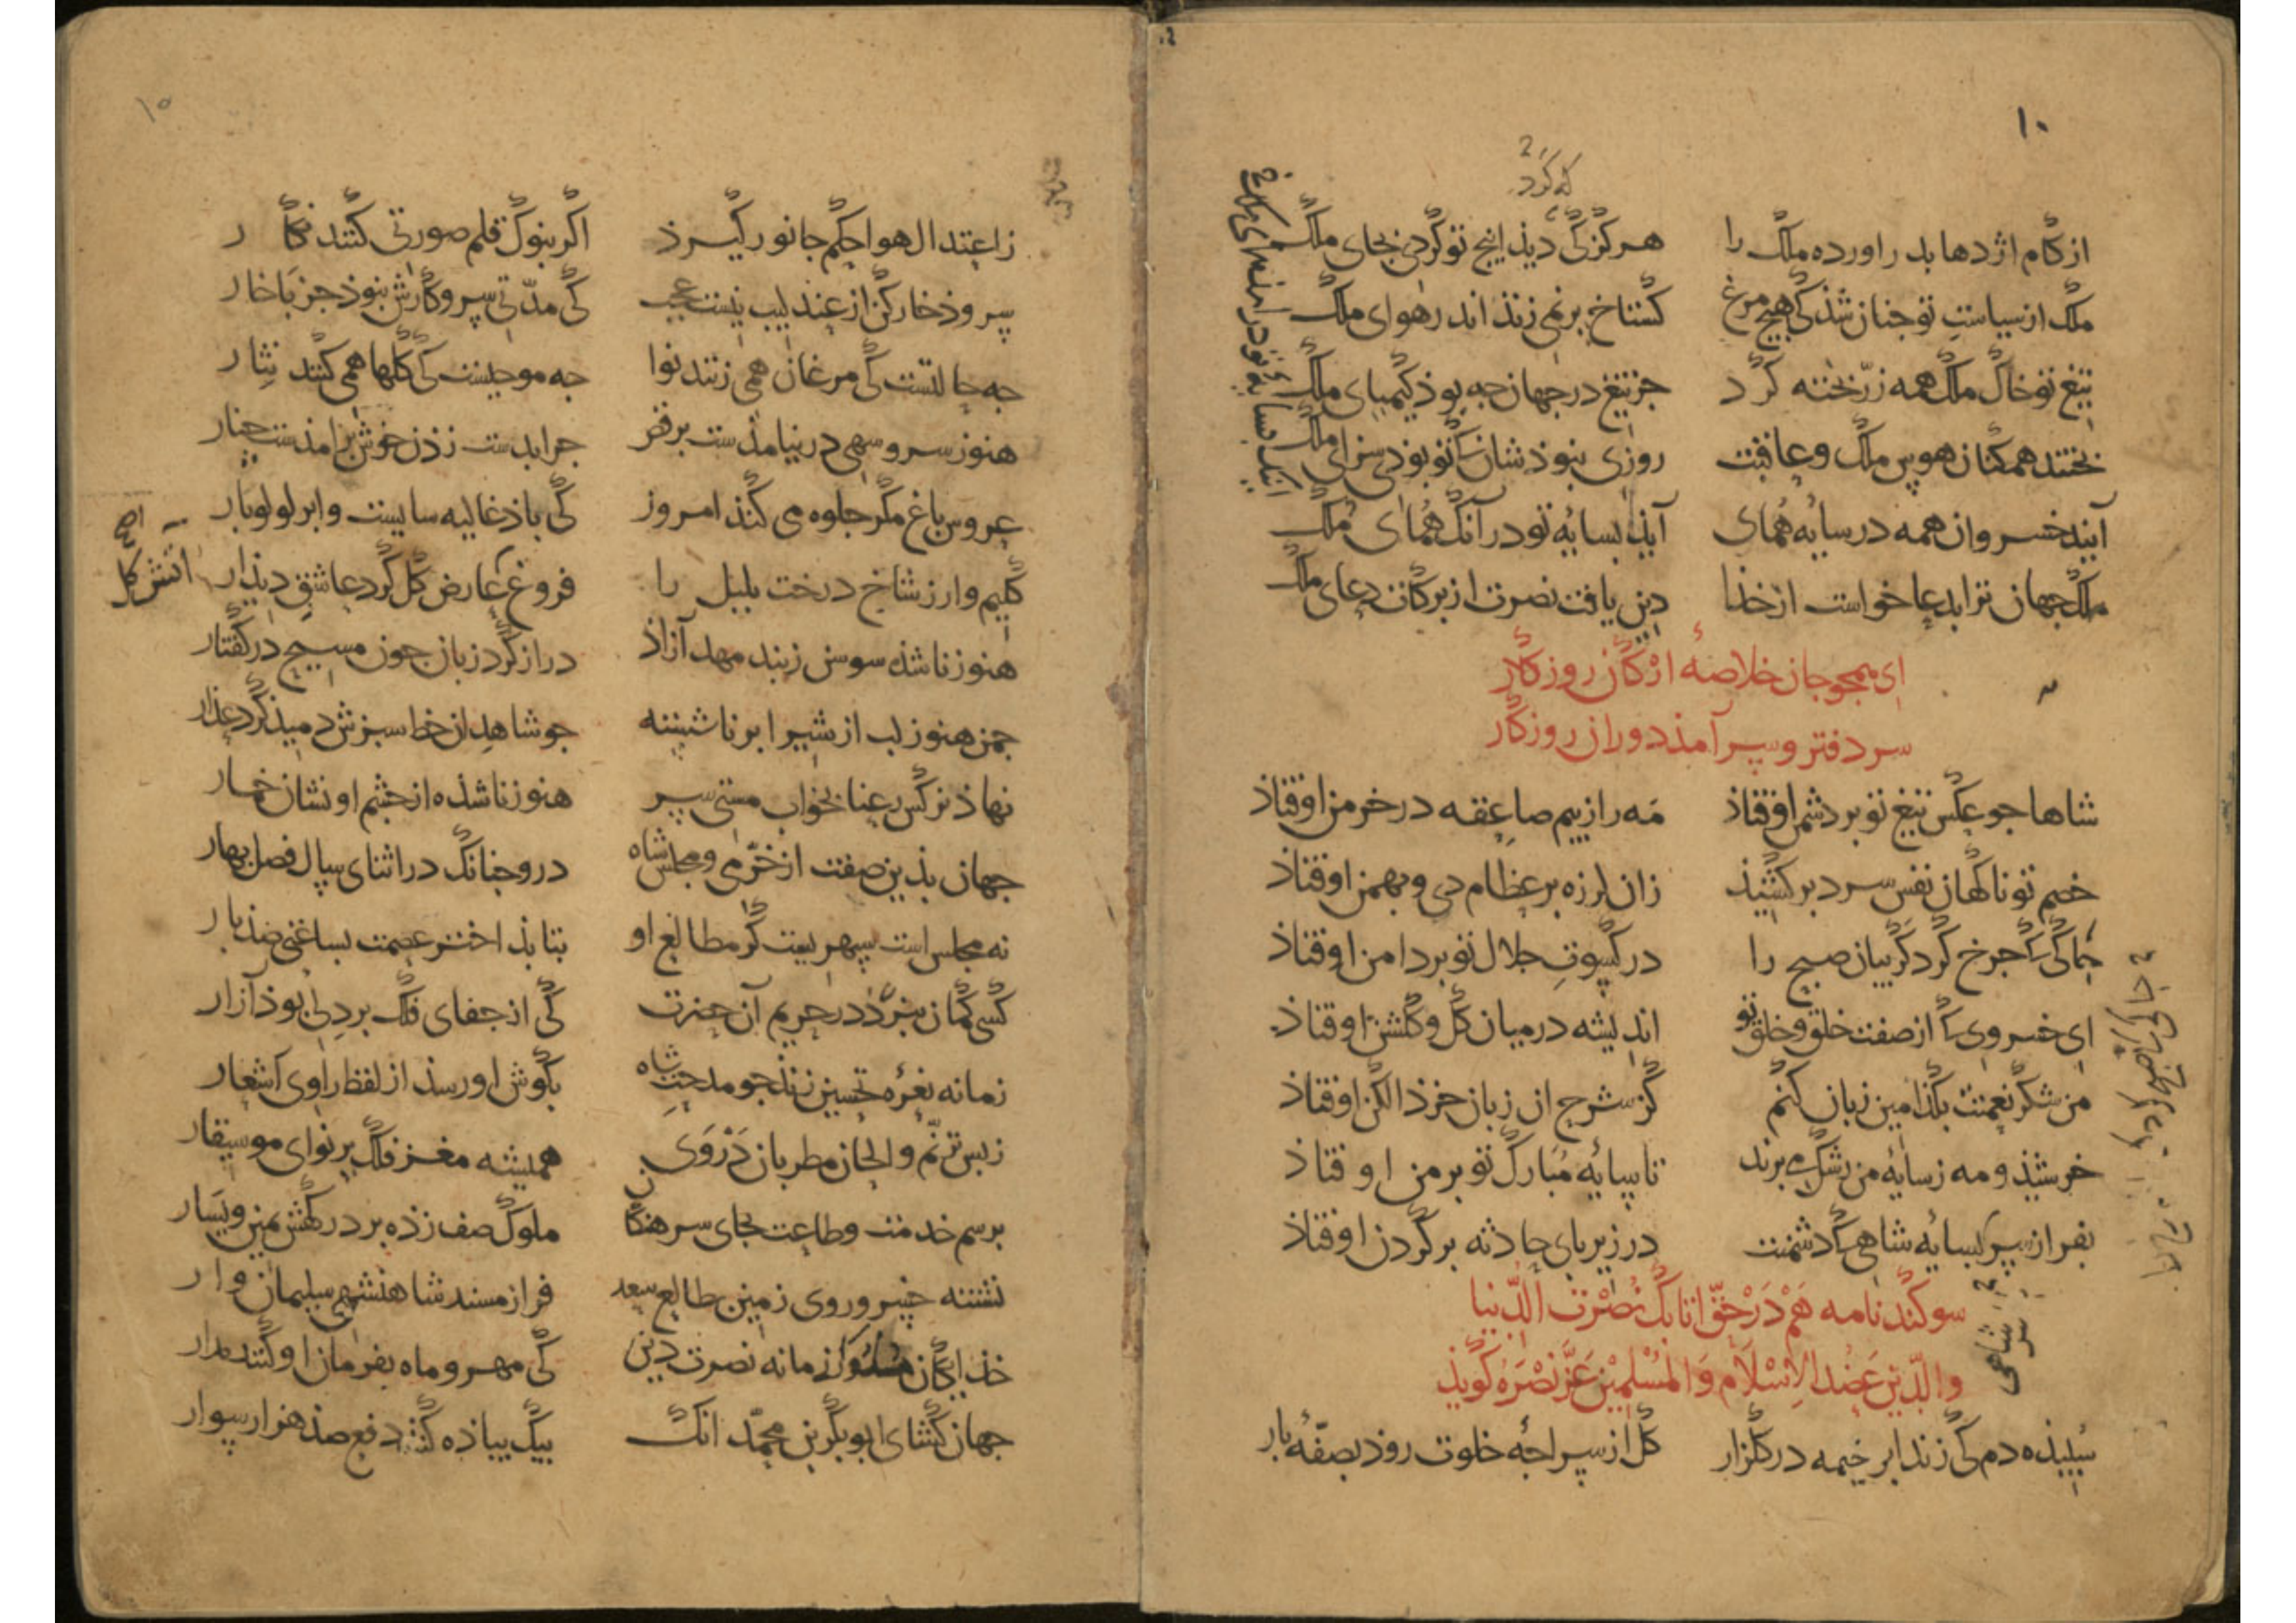 ۱۰
که کرد
از کام اژدها بدر اورده ملک را هرکز کی دیذ اینج تو کردی بجای ملک
ملک از سیاست تو جنان شذ کی هیچ مرغ کستاخ بر نمی زند اندر هوای ملک
تیغ تو خاک ملک همه زرّ بخته کرد جز تیغ در جهان جه بوذ کیمیای ملک
بختند همکنان هوس ملک و عاقبت روزی نبوذشان کتو بوذی سزای ملک
آیند خسروان همه در سایهٔ همای آیذ بسایهٔ تو در آنک همای ملک
ملک جهان ترا بدعا خواست از خذا دین یافت نصرت از برکات دعای ملک
ای همجو جان خلاصهٔ ارکان روزکار
سر دفتر و سر آمذ دوران روزکار
شاها جو عکس تیغ تو بر دشمن اوفتاذ مه را ز بیم صاعقه در خرمن اوفتاذ
خصم تو ناکهان نفس سرد بر کشیذ زان لرزه بر عظام دی و بهمن اوفتاذ
جاکی کجرخ کرد کریبان صبح را در کسوت جلال تو بر دامن اوفتاذ
ای خسروی کاز صفت خلق و خلق تو اندیشه در میان کل و کلشن اوفتاذ
من شکر نعمتت بکذامین زبان کنم کز شرح ان زبان خرذ الکن اوفتاذ
خرشیذ و مه ز سایهٔ من رشک می برند تا سایهٔ مبارک تو بر من اوفتاذ
بفراز سر بسایهٔ شاهی کدشمنت در زیر بای حادثه بر کردن اوفتاذ
سوکند نامه هم در حقّ اتابک نصرت الدّنیا
والدّین عضد الاسلام و المسلمین عزّ نصره کویذ
سبیذه دم کی زند ابر خیمه در کلزار کل از سراجهٔ خلوت روذ بصفّهٔ بار
۱۰
ز اعتدال هوا حکم جانور کیرذ اکر بنوک قلم صورتی کنند نکار
سروذ خارکن از عندلیب نیست عجب کی مدّتی سر و کارش نبوذ جز با خار
جه حالتست کی مرغان همی زنند نوا جه موجبست کی کلها همی کنند نثار
هنوز سرو سهی در نیامذست برقص جرا بدست زذن خوش برامذست جنار
عروس باغ مکر جلوه می کنذ امروز کی باذ غالیه سایست و ابر لولوبار
کلیم وار ز شاخ درخت بلبل را فروغ عارض کل کرد عاشق دیذار
اتش کل
هنوز ناشذه سوسن ز بند مهد آزاذ دراز کرد زبان جون مسیح در کفتار
جمن هنوز لب از شیر ابر ناشسته جو شاهدان خط سبزش دمیذ کرد عذار
نهاذ نرکس رعنا بخواب مستی سر هنوز ناشذه از جشم او نشان خمار
جهان بذین صفت از خرّمی و مجلس شاه درو جنانک در اثنای سال فصل بهار
نه مجلس است سپهریست کز مطالع او بتابذ اختر عصمت بساغتی صذ بار
کسی کمان نبرّد در حریم آن حضرت کی از جفای فلک بر دلی بوذ آزار
زمانه نعرهٔ تحسین زنذ جو مدحت شاه بکوش او رسذ از لفظ راوی اشعار
ز بس ترنّم و الحان مطربان دروی همیشه مغز فلک بر نوای موسیقار
برسم خدمت و طاعت بجای سرهنکان ملوک صف زذه بر درکهش یمین و یسار
نشسته خسرو روی زمین بطالع سعد فراز مسند شاهنشهی سلیمان وار
خذایکان ملوک زمانه نصرت دین کی مهر و ماه بفرمان او کنند مدار
جهان کشای ابوبکر بن محمّد انک بیک بیاذه کنذ دفع صذ هزار سوار